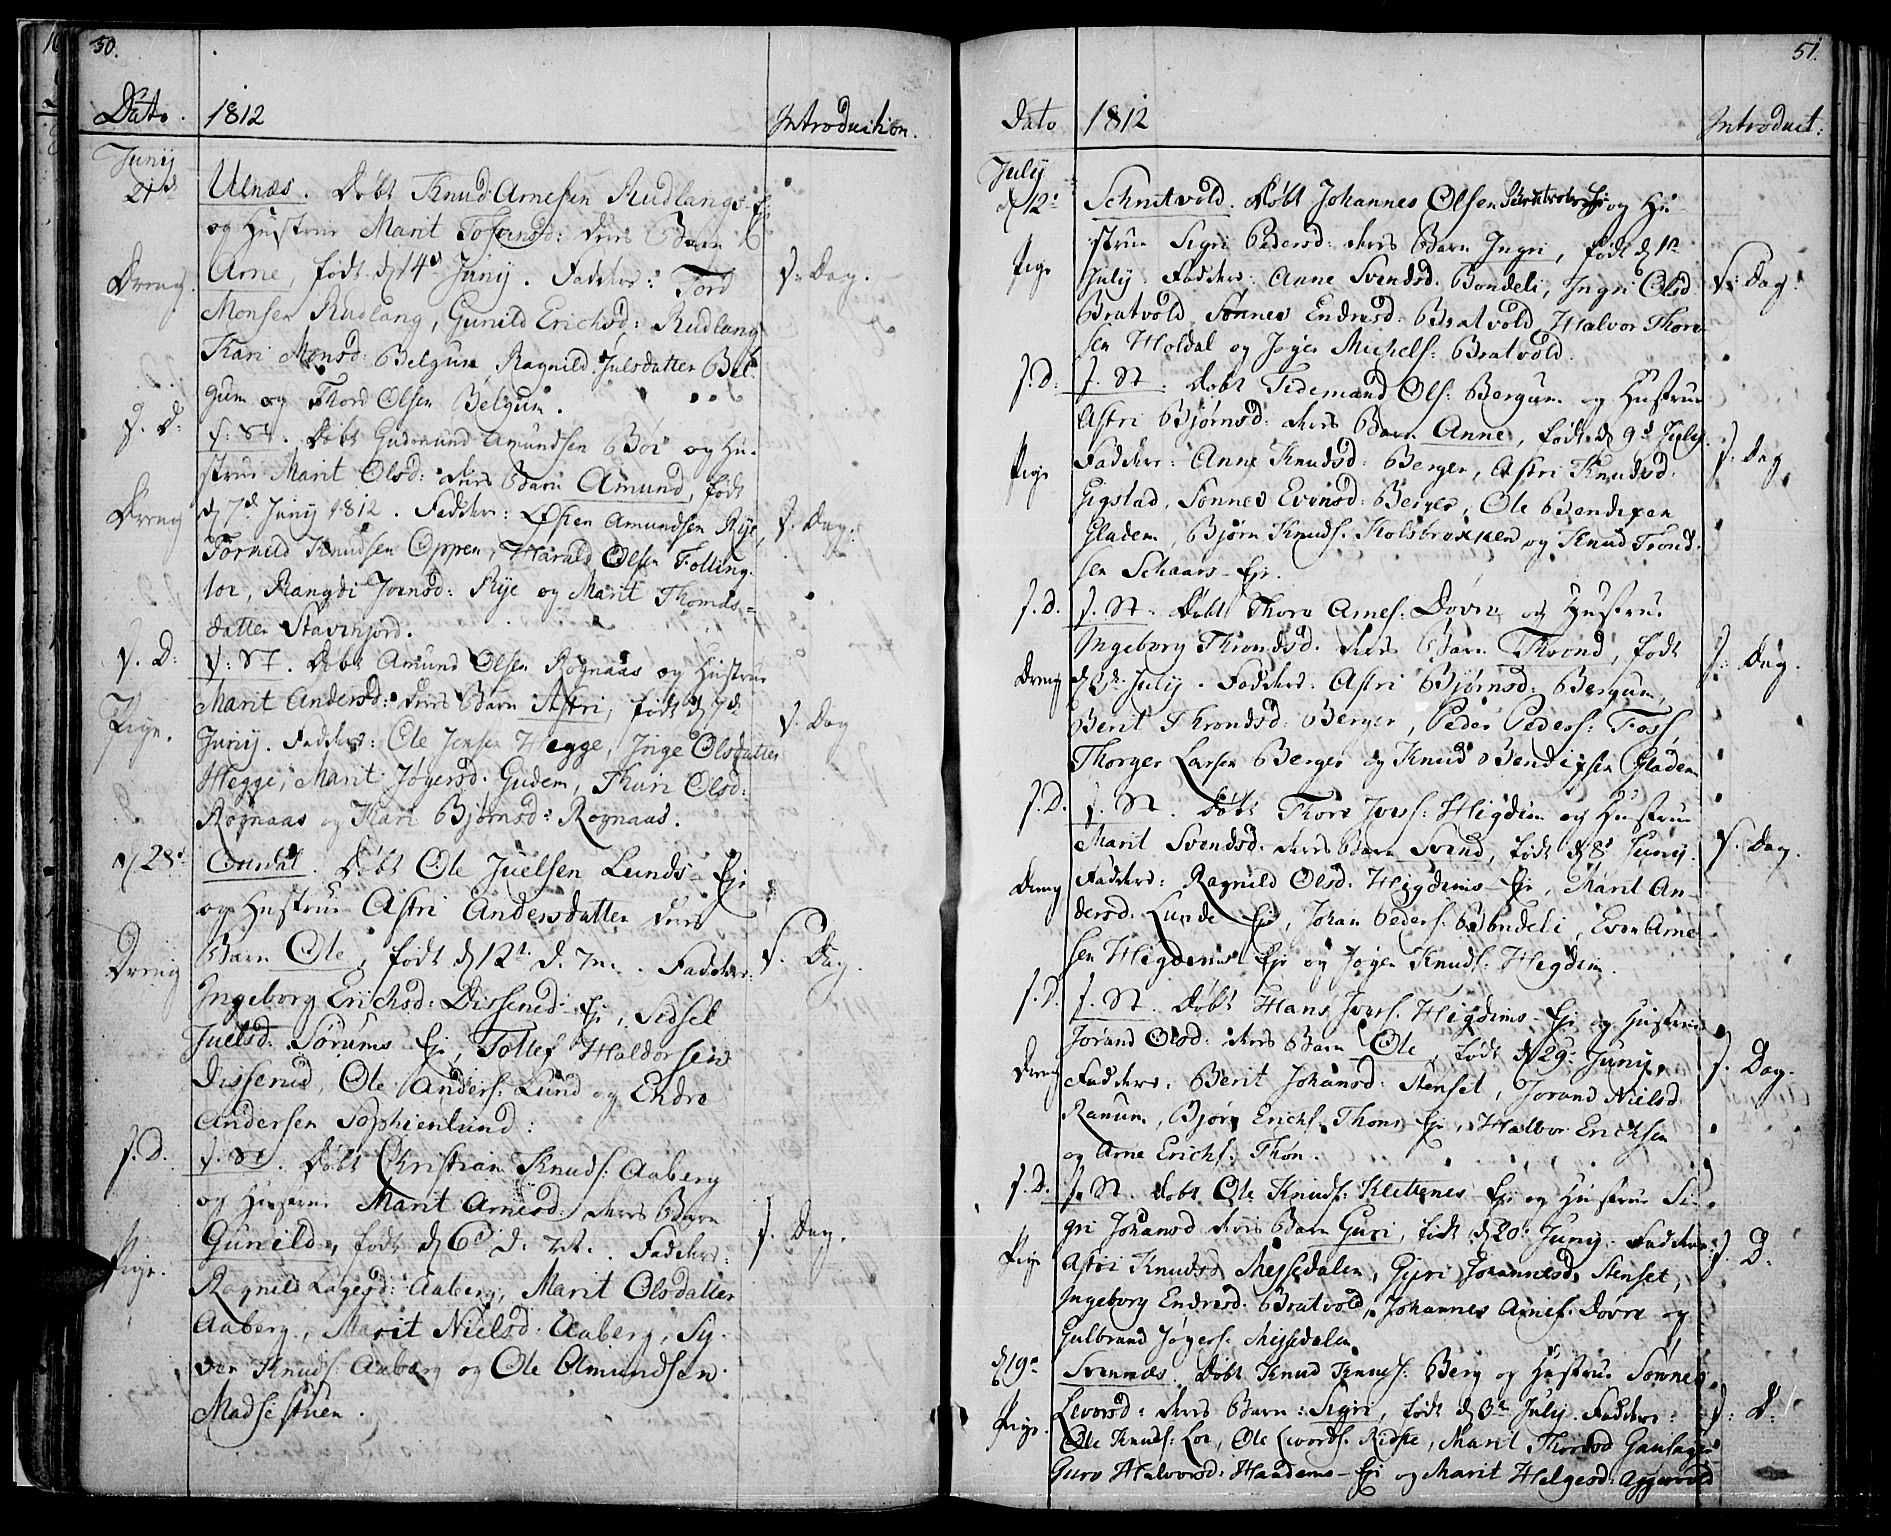 50.
Dato. 1812 Introduction.
Junij
21de Ulnæs. Døbt Knud Arnesen Rudlangs-Ej
og Hustrue Marit deres Barn
Dreng. Arne, født d 14d Junij. Faddere: Tord s: Dag.
Monsen Rudlang, Gunild Erichsd: Rudlang
Kari Monsd: Belgum Ragnild Julsdatter Bel-
gum og Thord Olsen Belgum.
s. D: s: St. Døbt Gudmund Amundsen Bøe og Hu-
strue Marit Olsd: deres Barn Amund, født
Dreng d 7d Junij 1812. Faddere: Østen Amundsen Rye, s. Dag.
Tornild Knudsen Oppen, Harald Olsen Folling-
loe, Rangdi Joensd: Rye og Marit Thomas=
datter Stavenjord.
s. D: s: St. Døbt Amund Olsen Rognaas og Hustrue
Marit Andersd: deres Barn Astri, født d 7de
Pige. Junij. Faddere: Ole Jensen Hegge, Inge Olsdatter s. Dag
Hegge, Marit Jøgersd. Gudem, Thuri Olsd:
Rognaas og Kari Bjørnsd: Rognaas.
d 28d Døbt Ole Juelsen Lunds-Ej
og Hustrue Astri Andersdatter deres
Dreng Barn Ole, født d 12t. d. M. Faddere: s. Dag.
Ingeborg Erichsd: Dissenud-Ej, Sidsel
Juelsd. Sørums Ej, Tollef Haldorsen
Dissenud, Ole Anders: Lund og Endre
Andersen Sophienlund:
s. D. s. St. Døbt Christian Knuds: Aaberg
og Hustrue Marit Arnesd: deres Barn
Pige. Gunild, født d 6d d. M. Faddere: s. Dag.
Ragnild Lagesd: Aaberg, Marit Olsdatter
Aaberg, Marit Nielsd. Aaberg, Sy-
ver Knuds: Aaberg og Ole Olmundsen
Madsestuen.
51.
Dato 1812 Introduct:
July
d 12t Schutvold. Døbt Johannes Olsen og Hu-
strue Sigri Pedersd: deres Barn Ingri, født d 1n
Pige July. Faddere: Anne Svendsd. Bondeli, Ingri Olsd s: Dag.
Bratvold, Sønnev Endresd: Bratvold Halvor Thore-
sen Holdal og Jøger Michels: Bratvold.
s. D: s. St. Døbt Tidemand Ols: Bergum og Hustrue
Astri Bjørnsd: deres Barn Anne, født d 9d July.
Pige Faddere: Anne Knudsd: Berger, Astri Knudsd. s. Dag
Gigstad, Sønnev Evensd: Berger, Ole Bendixen
Gladem, Bjørn Knuds. Kolsbrækken og Knud Trond-
sen Schaars-Ej.
s. D. s. St. Døbt Thore Arnes: Dovre og Hustrue
Ingeborg Throndsd. deres Barn Thrond, født s: Dag.
Dreng July. Faddere: Astri Bjørnsd: Bergum,
Berit Throndsd: Berger, Peder Peders: Foss,
Thorger Larsen Berger og Knud Bendixsen Gladem
s. D. s. St. Døbt Thore Ivers: Higdem og Hustrue
Marit Svendsd. deres Barn Svend, født d 8d Junij. s. Dag.
Dreng Faddere: Ragnild Olsd: Higdems-Ej, Marit An-
dersd: Lunde-Ej, Johan Peders: Bondeli, Even Arne-
sen Higdems Ej og Jøgen Knuds: Higdem.
s. D. s. St. Døbt Hans Ivers. Higdems-Ej og Hustrue
Jorand Olsd: deres Barn Ole, født d 29. Junij,
Dreng Faddere: Berit Johansd: Stenset, Jorand Nielsd. s. Dag.
Ranum, Bjørn Erichs. Thons Ej, Halvor Erichsen
og Arne Erichs. Thon.
s. D. s. St. Døbt Ole Knuds: Klettenes-Ej og Hustrue Si-
gri Johansd deres Barn Guri, født d 20. Junij. Faddere: s. D.
Pige Astri Knudsd Mejsedalen, Gjøri Johannesd. Stenset,
Ingeborg Endresd. Bratvold, Johannes Arnes. Dovre og
Gulbrand Jøgers. Mejsedalen
d 19n Svennæs. Døbt Knud Knuds: Berg og Hustrue Sønnev
Pige. Levorsd: deres Barn: Sigri, født d 3d July. Faddere: s: D.
Ole Knuds: Loe, Ole Levords. Ridste, Marit Thordsd Gausager
Guro Halvorsd: Haadems-Ej og Marit Helgesd: